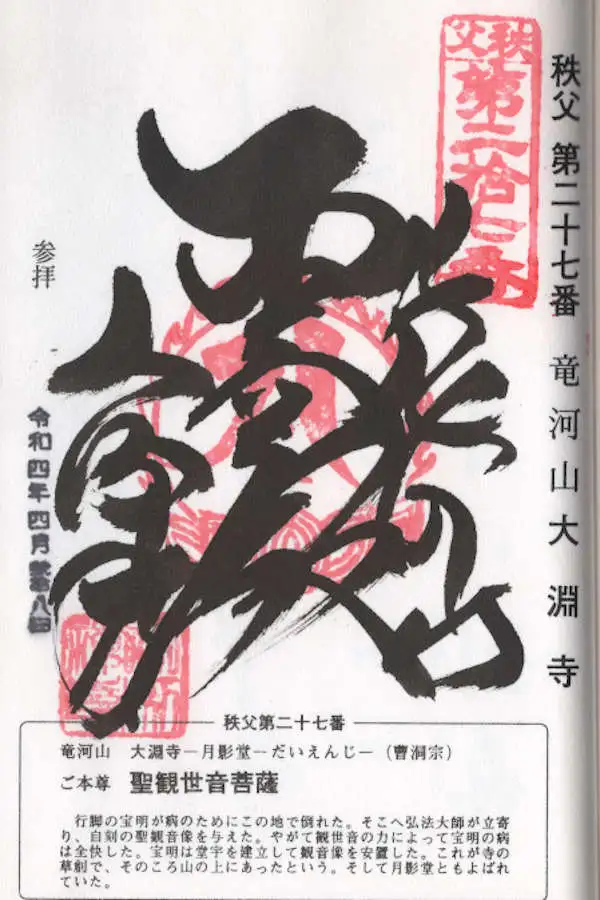 秩父 第二十七番 竜河山大淵寺
秩父
参拝
令和四年四月
秩父第二十七番
竜河山 大淵寺―月影堂―だいえんじ―(曹洞宗)
ご本尊 聖観世音菩薩
行脚の宝明が病のためにこの地で倒れた。そこへ弘法大師が立寄
り、自刻の聖観音像を与えた。やがて観世音の力によって宝明の病
は全快した。宝明は堂宇を建立して観音像を安置した。これが寺の
草創で、そのころ山の上にあったという。そして月影堂ともよばれ
ていた。